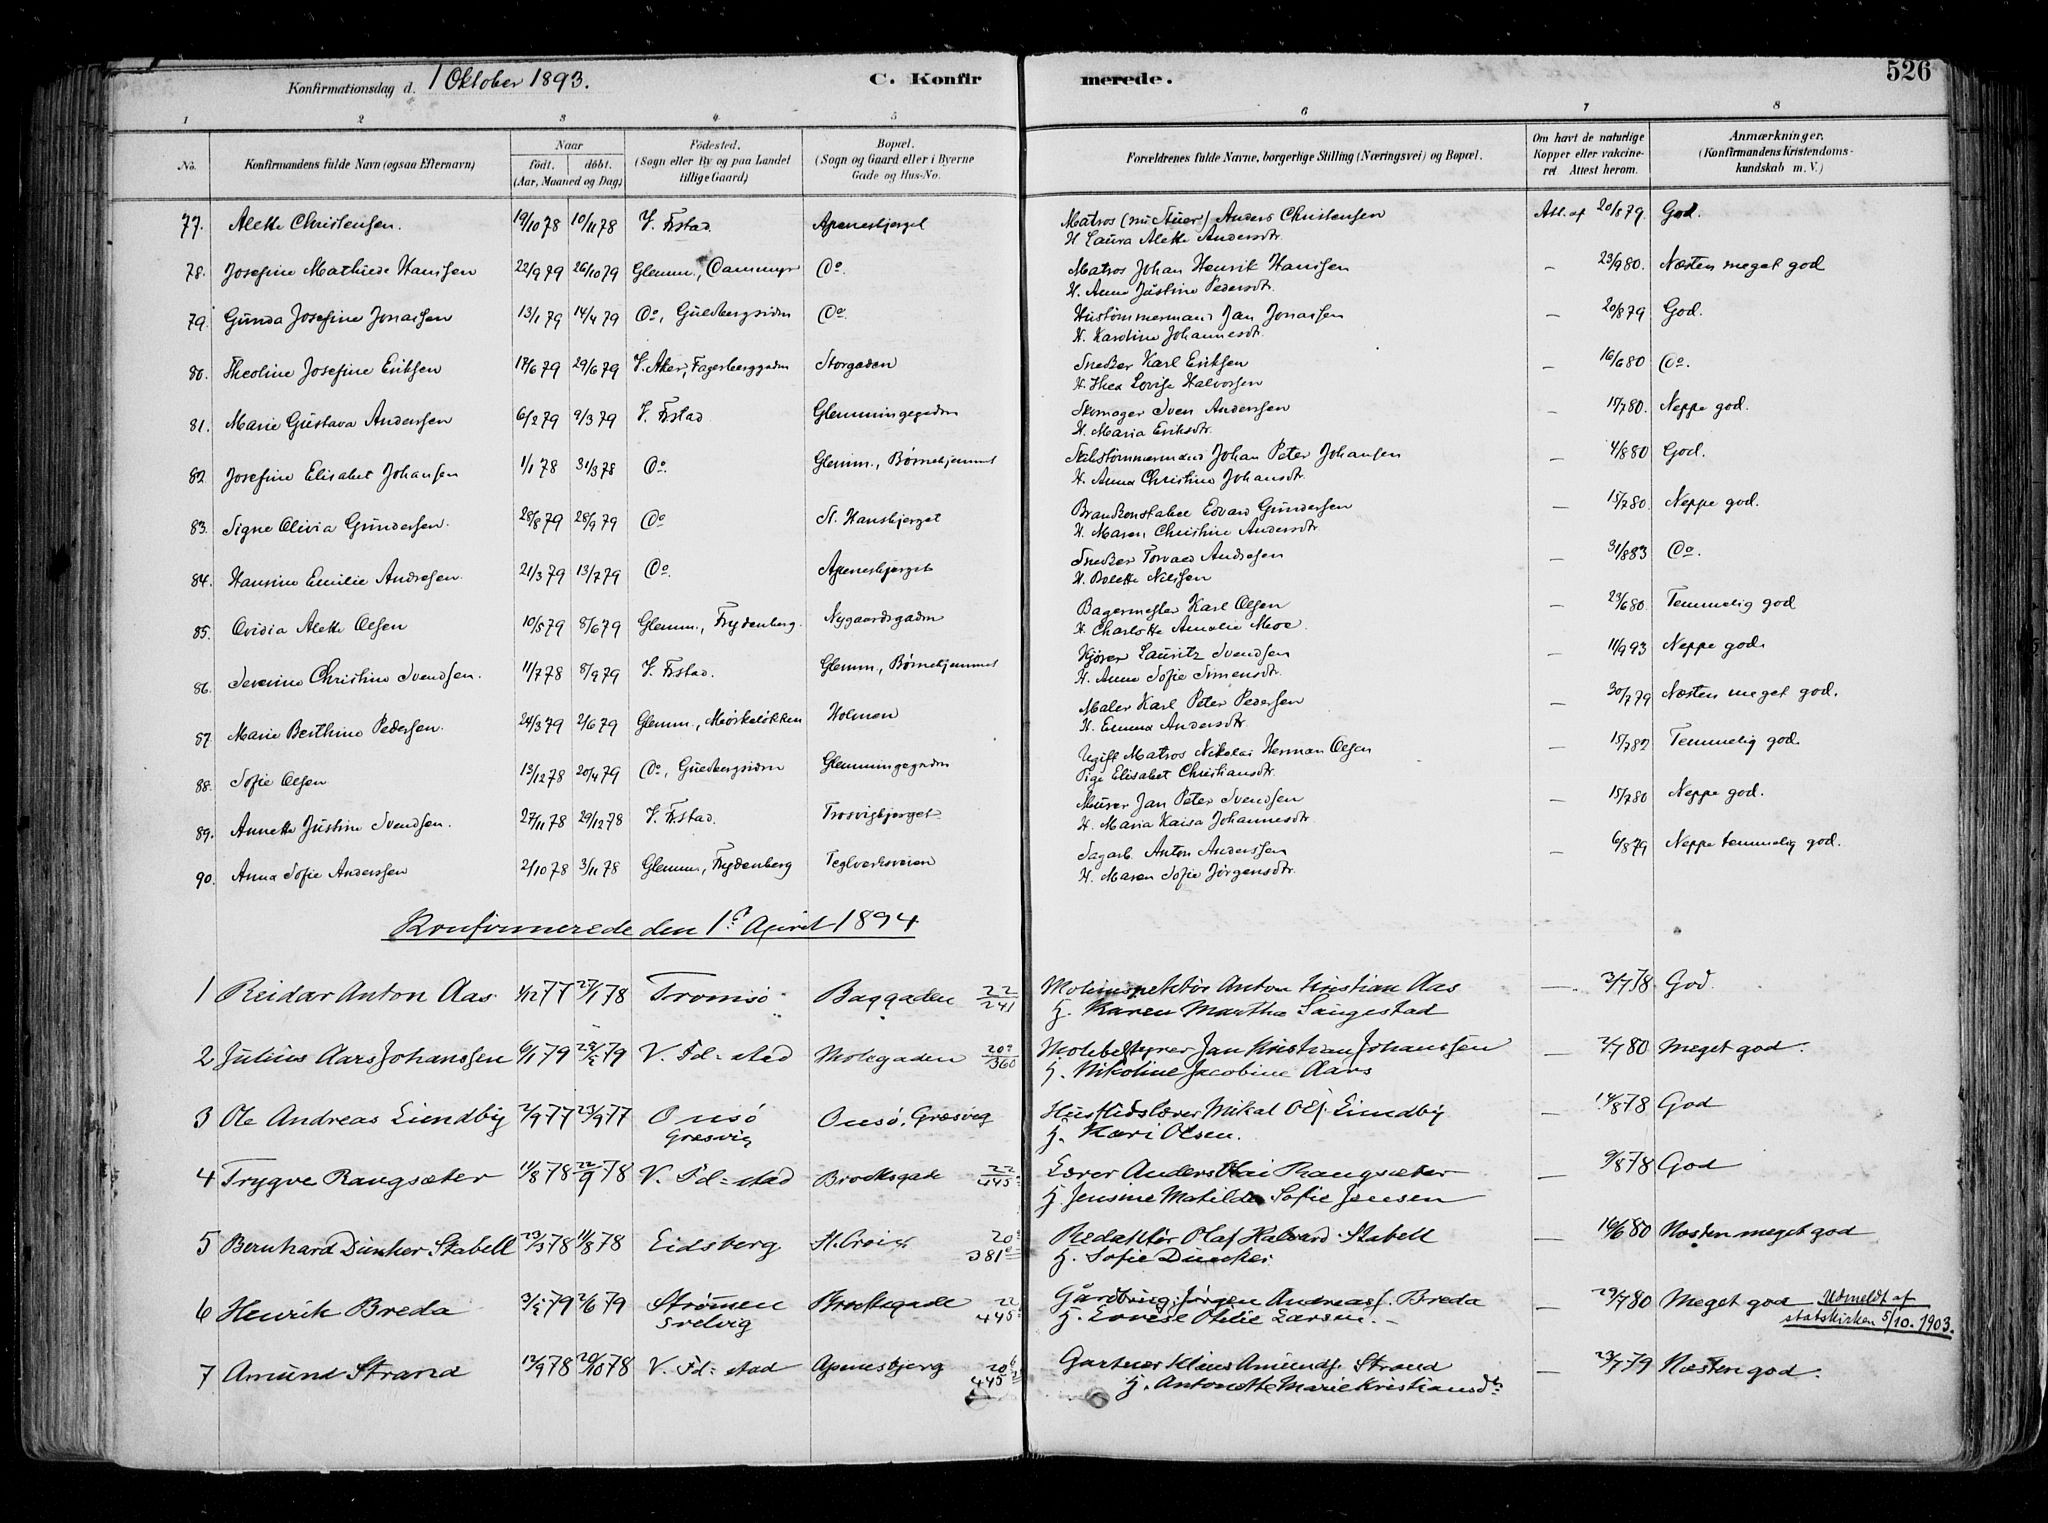 Konfirmationsdag d. 1 Oktober 1893.
C. Konfirmerede.
526
1 2 3 4 5 6 7 8
No. Konfirmandens fulde Navn (ogsaa Efternavn) Naar født. døbt. (Aar, Maaned og Dag) Födested. (Sogn eller By og paa Landet tillige Gaard) Bopæl. (Sogn og Gaard eller i Byerne Gade og Hus-No. Forældrenes fulde Navne, borgerlige Stilling (Næringsvei) og Bopæl. Om havt de naturlige Kopper eller vakcineret Attest herom. Anmærkninger. (Konfirmandens Kristendomskundskab m. V.)
77. Alette Christensen. 19/10 78 10/11 78 V. Frstad. Apenesbjerget Matros (nu Stuer) Anders Christensen Att. af 20/8 79 God.
H. Laura Alette Andersdtr.
78. Josefine Mathilde Hanssen 22/9 79 26/10 79 Glemm., Dammyr Do. Matros Johan Henrik Hanssen — 23/9 80. Næsten meget god
H. Anna Justine Pedersdtr.
79. Gunda Josefine Jonassen 13/1 79 14/4 79 Do, Guldbergsiden Do. Hustømmermand Jan Jonassen — 20/8 79 God.
H. Karoline Johannesdtr.
80. Theoline Josefine Eriksen 17/6 79 29/6 79 V. Aker, Fagerberggaden Storgaden Snedker Karl Eriksen — 16/6 80 Do.
H. Thea Lovise Halvorsen
81. Marie Gustava Anderssen 6/2 79 9/3 79 V. Frstad Glemmingegaden Skomager Sven Anderssen — 15/7 80. Neppe god.
H. Maria Eriksdtr.
82. Josefine Elisabet Johansen 1/1 78 31/3 78 Do. Glemm., Børnehjemmet Skibstømmermand Johan Peter Johansen — 4/8 80 God.
H. Anna Christine Johansdtr.
83. Signe Olivia Gundersen. 28/8 79 28/9 79 Do St. Hansbjerget Brandkonstabel Edvard Gundersen — 15/7 80. Neppe god.
H. Maren Christine Andersdtr.
84. Hansine Emilie Andresen. 21/3 79 13/7 79 Do. Apenesbjerget Snedker Torvald Andresen — 31/8 83 Do.
H. Bolette Nilssen
85. Ovidia Alette Olsen 10/5 79 8/6 79 Glemm., Frydenberg. Nygaardsgaden Bagermester Karl Olsen — 23/6 80. Temmelig god
H. Charlotte Amalie Moe.
86. Severine Christine Svendsen. 11/7 78 8/9 79 V. Frstad. Glemm., Børnehjemmet Kjører Lauritz Svendsen — 11/9 93 Neppe god.
H. Anna Sofie Simensdtr.
87. Marie Berthine Pedersen. 24/3 79 2/6 79 Glemm., Mørkeløkken Holmen Maler Karl Peter Pedersen — 30/7 79 Næsten meget god.
H. Emma Andersdtr.
88. Sofie Olsen 13/12 78 20/4 79 Do, Guldbergsiden Glemmingegaden Ugift Matros Nikolai Herman Olsen — 15/7 82 Temmelig god.
Pige Elisabet Christiansdtr.
89. Annette Justine Svendsen. 27/11 78 29/12 78 V. Frstad. Trosvigbjerget Murer Jan Peter Svendsen — 15/7 80 Neppe god.
H. Maria Kaisa Johannesdtr.
90. Anna Sofie Anderssen 2/10 78 3/11 78 Glemm., Frydenberg Teglverksveien Sagarb. Anton Anderssen — 6/8 79 Neppe temmelig god.
H. Maren Sofie Jørgensdtr.
Konfirmerede den 1ste April 1894
1 Reidar Anton Aas 1/12 77 27/1 78 Tromsö Baggaden 22/241 Molinspektør Anton Kristian Aas — 2/7 78 God.
H. Karen Martha Saugestad
2 Julius Aars Johanssen 6/1 79 29/5 79 V. Fd=stad Molegaden 20a/360 Molebestyrer Jan Kristian Johanssen — 2/7 80 Meget god.
H. Nikoline Jacobine Aars
3 Ole Andreas Lundby 2/9 77 23/9 77 Onsö Gresvig Onsö, Græsvig Husflidslærer Mikal Ols. Lundby — 14/8 78 God
H. Kari Olsen.
4 Trygve Rangsæter 11/8 78 22/9 78 V. Fd=stad Brocksgade 22/445 Lærer Anders Rangsæter — 9/8 78 God
H. Jensine Matilde Sofie Jensen
5 Bernhard Dunker Stabell 23/3 78 11/8 78 Eidsberg St. Croix 20/381 Redaktør Olaf Halvard Stabell — 16/6 80 Næsten meget god
H. Sofie Duncker
6 Henrik Breda 3/5 79 2/6 79 Strømmen Svelvig Brocksgade 22/445 Gårdbrug. Jørgen Andreas f. Breda — 29/7 80 Meget god Udmeldt af statskirken 5/10. 1903.
H. Lovise Otilie Larsen.
7 Amund Strand 12/9 78 20/10 78 V. Fd=stad Apenesbjerg 20b/445 Gartner Klaus Amunds. Strand — 23/7 79 Næsten god.
H. Antonette Marie Kristiansdtr